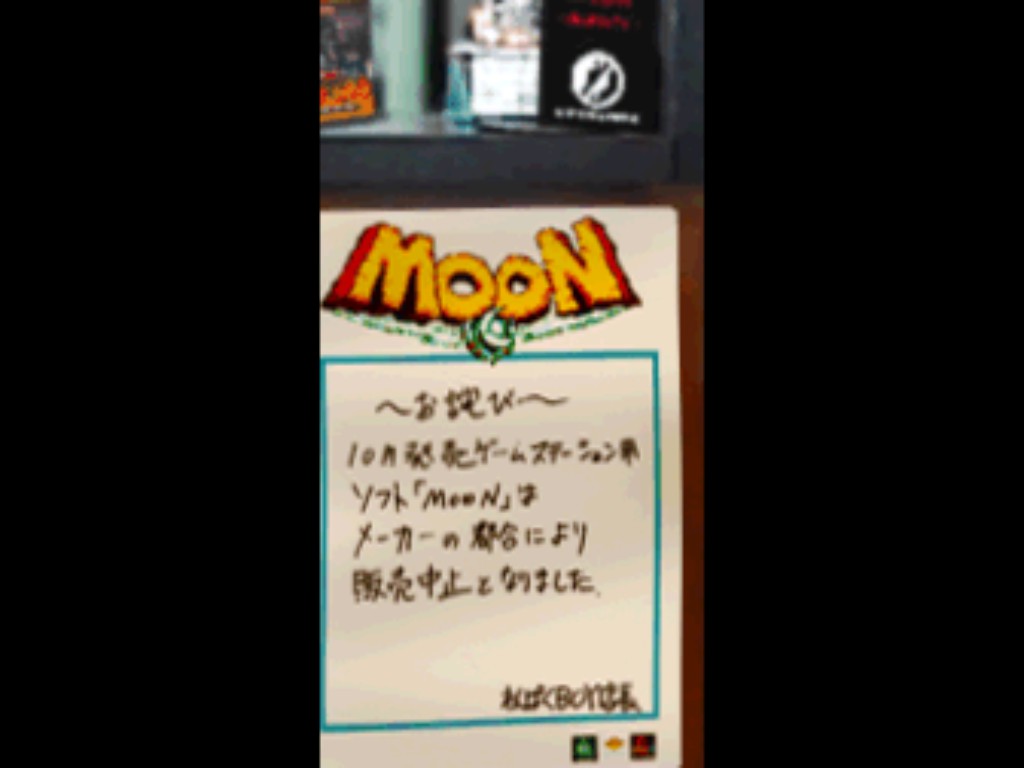 MOON
～お詫び～
10月発売ゲームステーション用
ソフト「MOON」は
メーカーの都合により
販売中止となりました。
わんぱくBOY店長